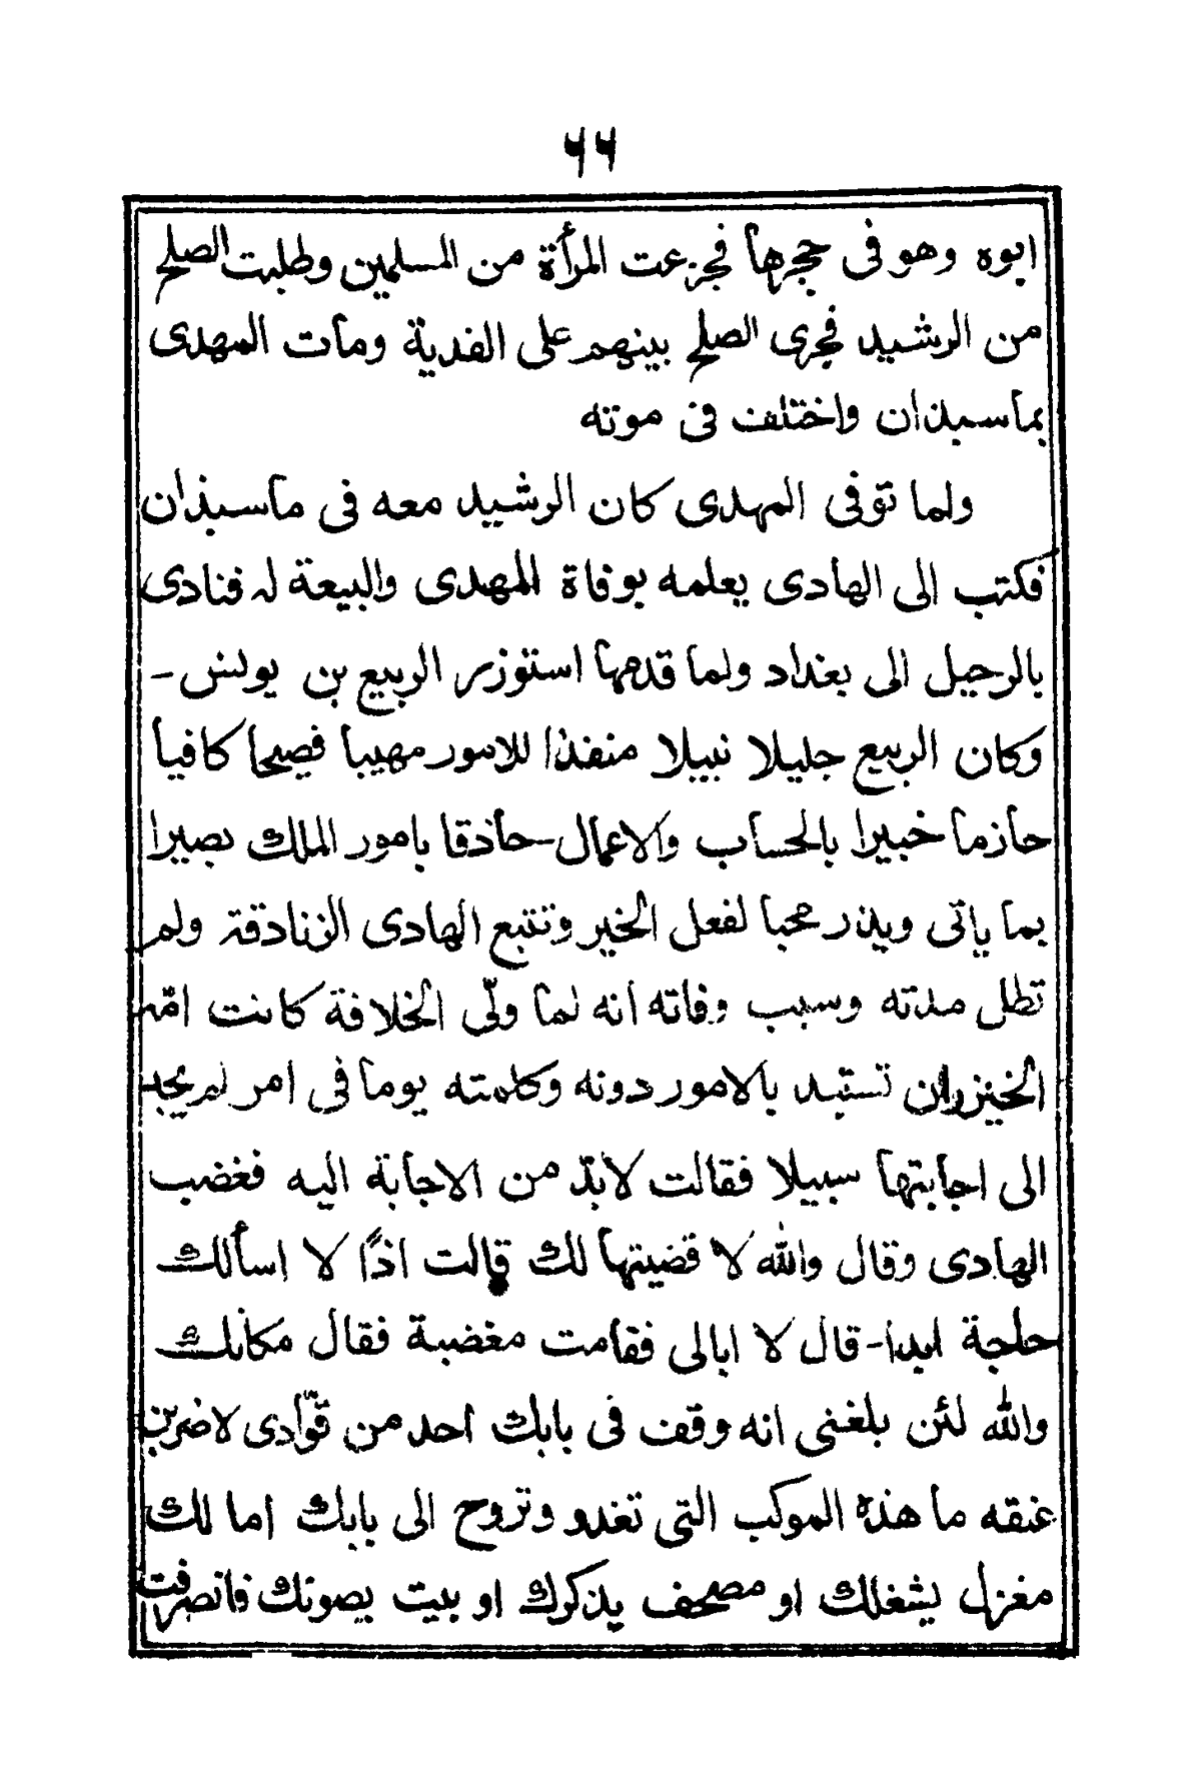 ٦٦
ابوه وهو فى حجرها فجزعت المرأة من المسلمين وطلبت الصلح
من الرشيد فجرى الصلح بينهم على الفدية ومات المهدى
بماسبذان واختلف فى موته
ولما توفى المهدى كان الرشيد معه فى ماسبذان
فكتب الى الهادى يعلمه بوفاة المهدى والبيعة له فنادى
بالرحيل الى بغداد ولما قدمها استوزر الربيع بن يونس -
وكان الربيع جليلا نبيلا منفذا للامور مهيبا فصيحا كافيا
حازما خبيرا بالحساب والاعمال - حاذقا بامور الملك بصيرا
بما ياتى ويذر محبا لفعل الخير وتتبع الهادى الزنادقة ولم
تطل مدته وسبب وفاته انه لما ولّى الخلافة كانت امّه
الخيزران تستبد بالامور دونه وكلمته يوما فى امر لم يجد
الى اجابتها سبيلا فقالت لا بدّ من الاجابة اليه فغضب
الهادى وقال والله لا قضيتها لك قالت اذًا لا اسألك
حاجة ابدا - قال لا ابالى فقامت مغضبة فقال مكانك
والله لئن بلغنى انه وقف فى بابك احد من قوّادى لاضربن
عنقه ما هذه الموكب التى تغدو وتروح الى بابك اما لك
مغزل يشغلك او مصحف يذكرك او بيت يصونك فانصرفت